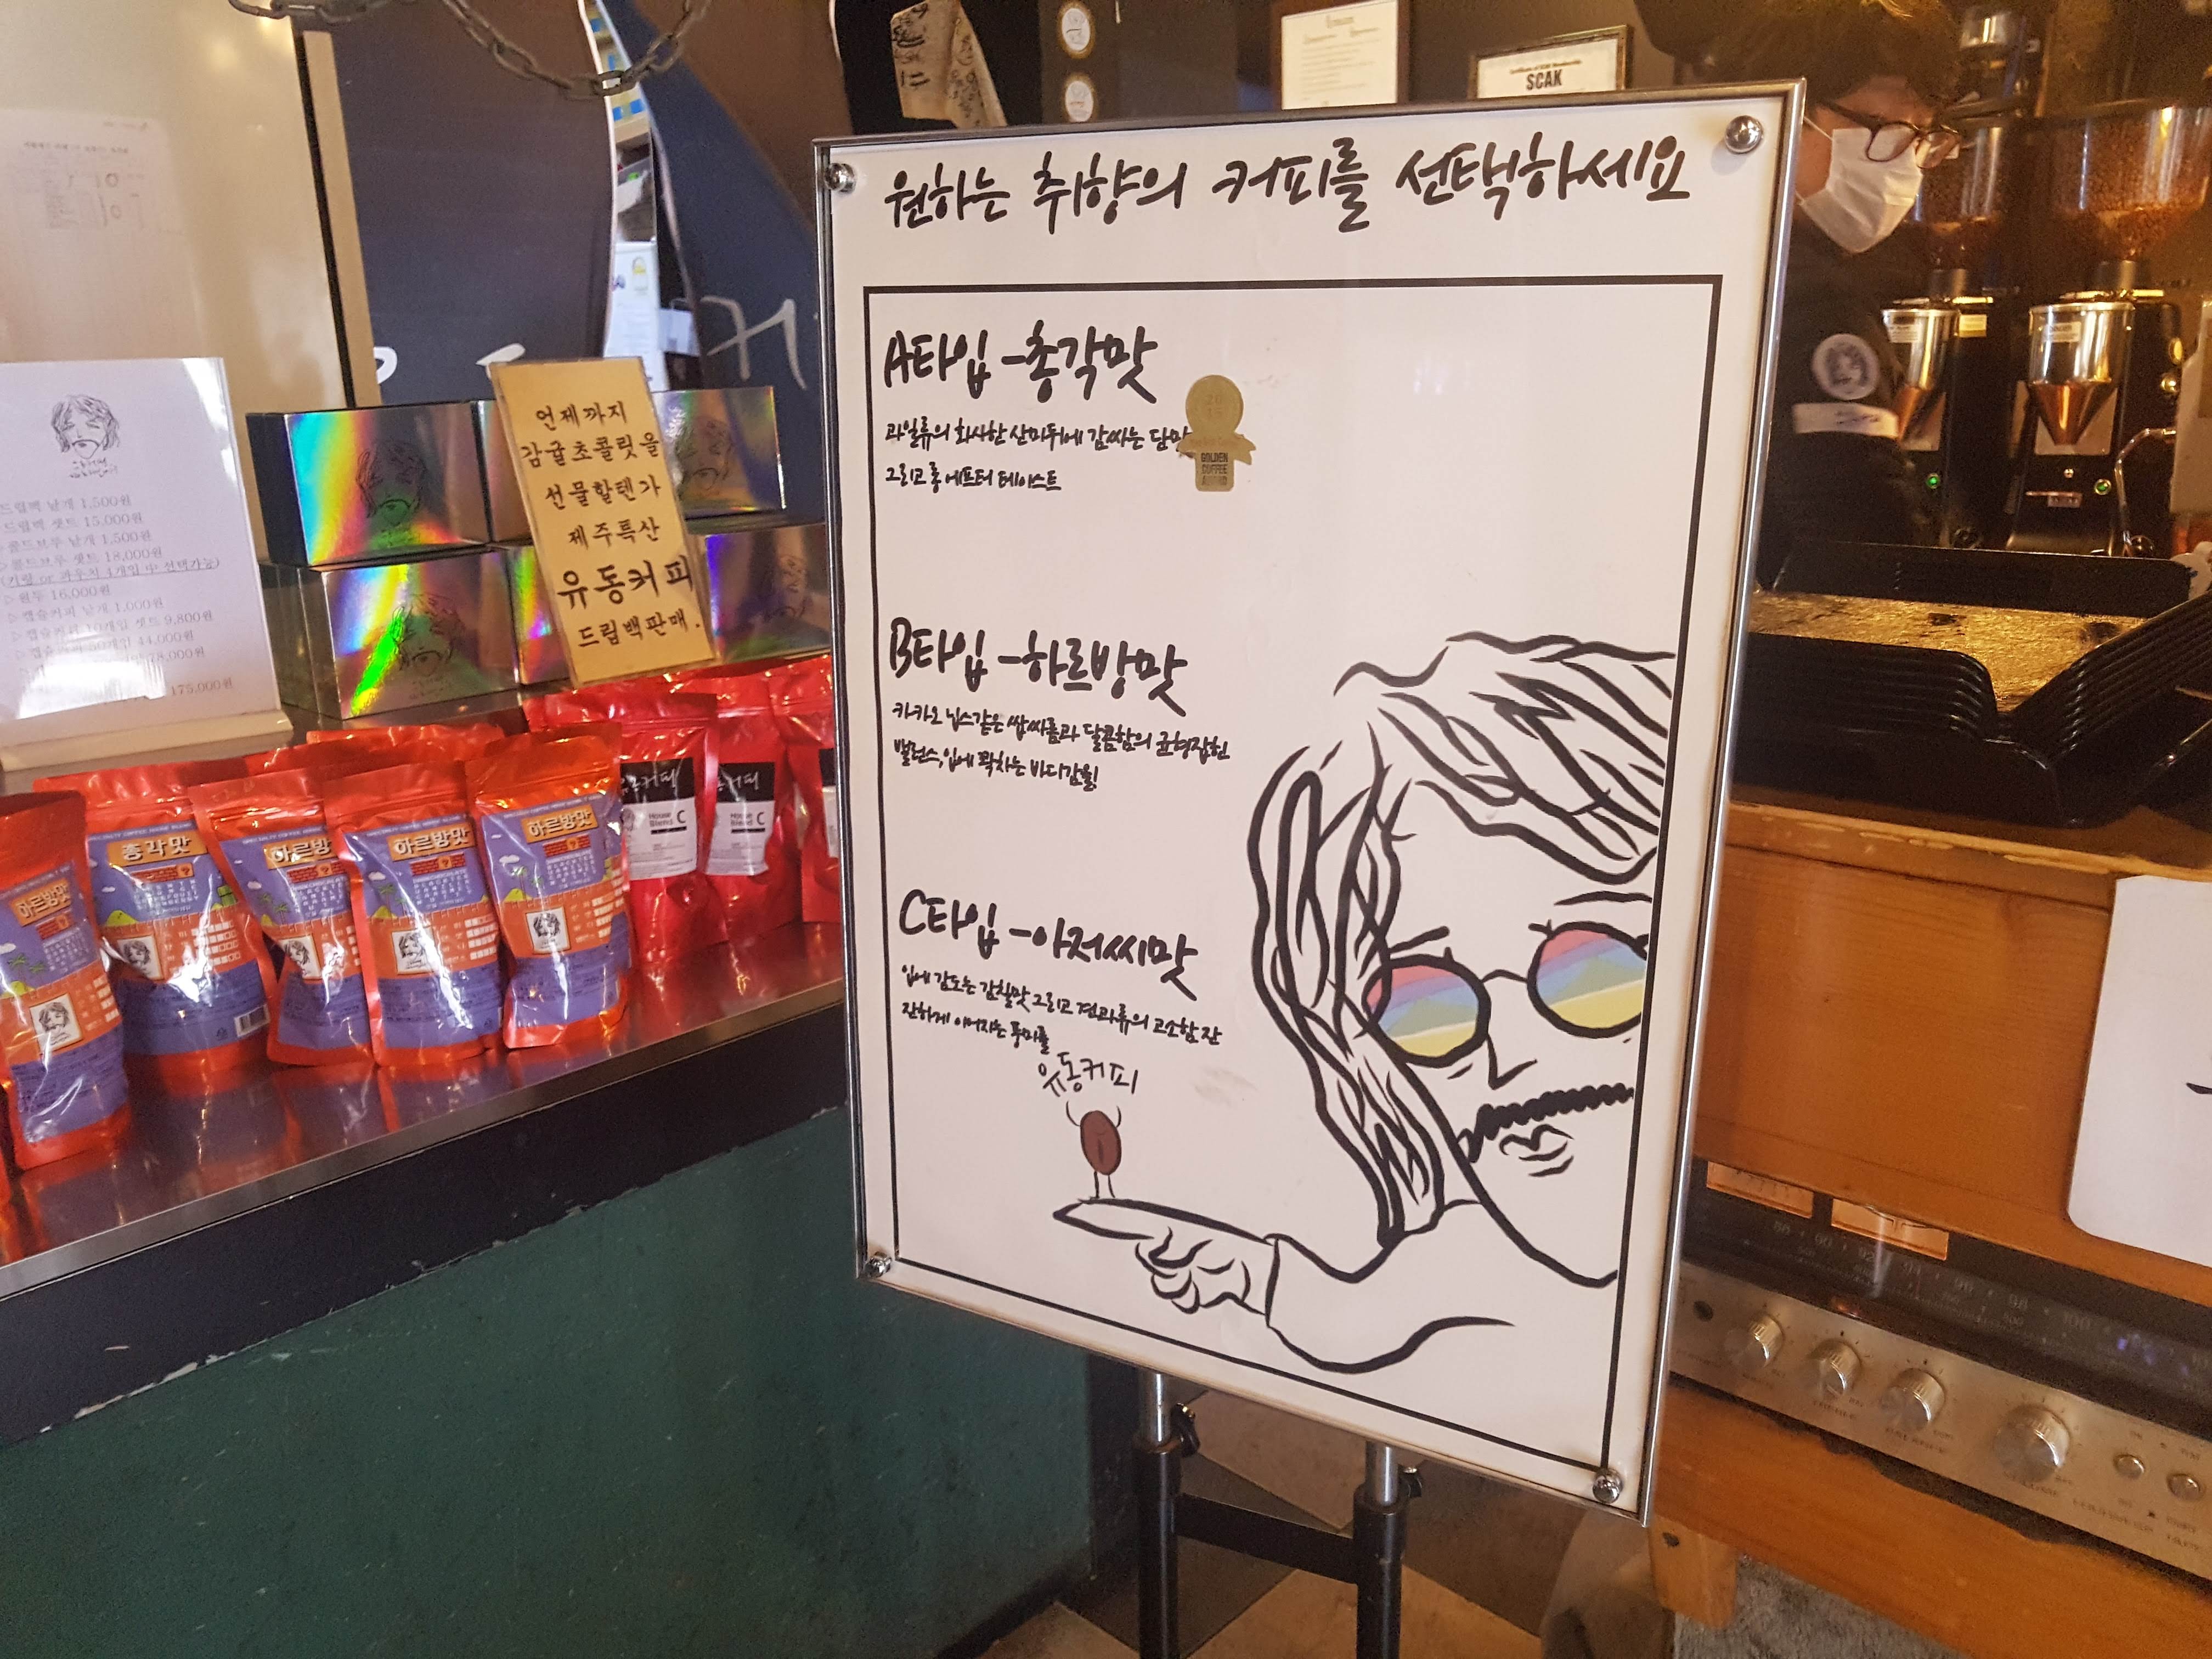 원하는 취향의 커피를 선택하세요
A타입 -총각맛
과일류의 화사한 산미뒤에 감싸는 단맛
그리고 롱 에프터 테이스트
GOLDEN
COFFEE
AWARD
B타입 -하르방맛
카카오 닙스같은 쌉싸름과 달콤함의 균형잡힌
밸런스, 입에 꽉차는 바디감을!
C타입 -아저씨맛
입에 감도는 감칠맛 그리고 견과류의 고소함 잔
잔하게 이어지는 풍미를
유동커피
언제까지
감귤초콜릿을
선물할텐가
제주특산
유동커피
드립백판매.
드립백 낱개 1,500원
드립백 셋트 15,000원
콜드브루 낱개 1,500원
▷콜드브루 셋트 18,000원
▷원두 16,000원
▷캡슐커피 낱개 1,000원
▷캡슐커피 10개입 셋트 9,800원
44,000원
78,000원
175,000원
하르방맛
총각맛
하르방
하르방맛
하르방맛
House
Blend C
커피
House
Blend C
SCAK
커